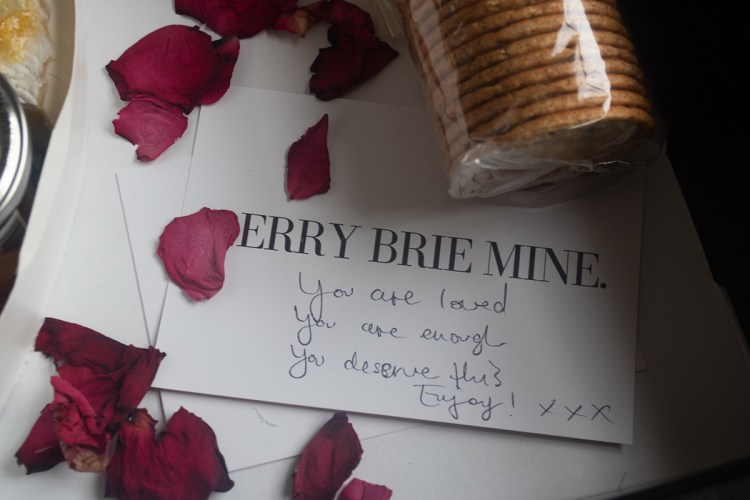 ERRY BRIE MINE.
You are loved
You are enough
You deserve this
Enjoy! xxx